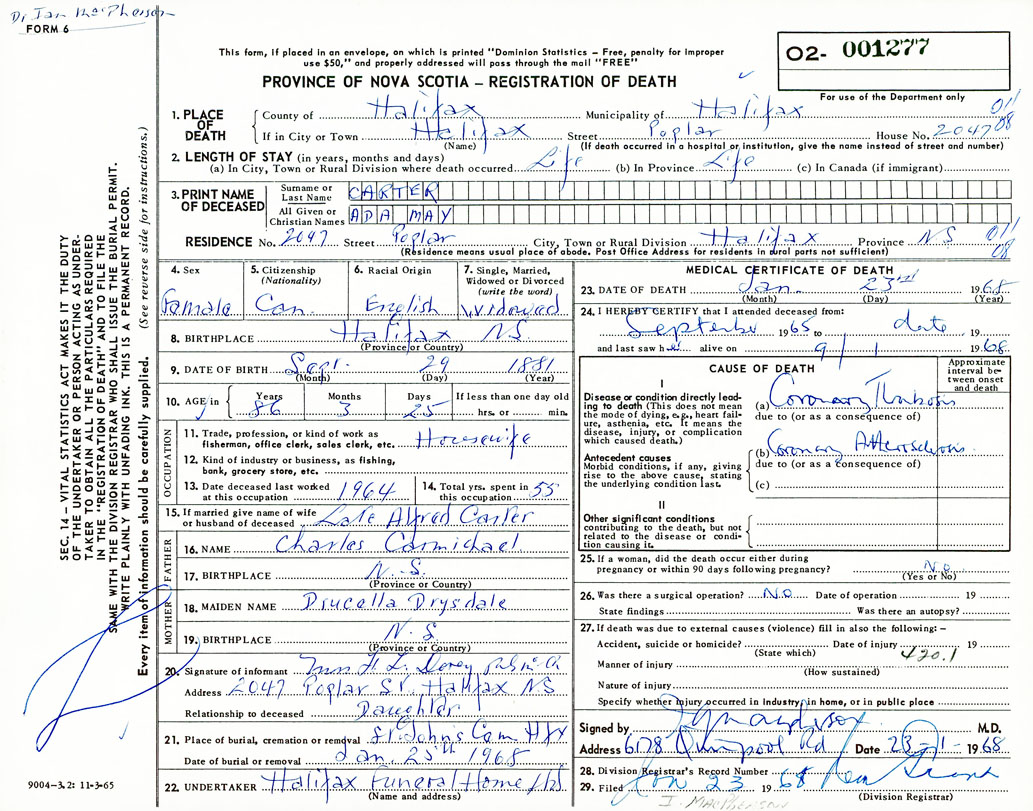 Dr Ian MacPherson
FORM 6
This form, if placed in an envelope, on which is printed "Dominion Statistics – Free, penalty for improper
use $50," and properly addressed will pass through the mail "FREE"
O2- 001277
For use of the Department only
PROVINCE OF NOVA SCOTIA – REGISTRATION OF DEATH
1. PLACE OF DEATH
County of Halifax Municipality of Halifax 011
If in City or Town Halifax Street Poplar House No. 2047 08
(Name) (If death occurred in a hospital or institution, give the name instead of street and number)
2. LENGTH OF STAY (in years, months and days)
(a) In City, Town or Rural Division where death occurred Life (b) In Province Life (c) In Canada (if immigrant)
3. PRINT NAME OF DECEASED
Surname or Last Name CARTER
All Given or Christian Names ADA MAY
RESIDENCE No. 2047 Street Poplar City, Town or Rural Division Halifax Province NS 011 08
(Residence means usual place of abode. Post Office Address for residents in rural parts not sufficient)
4. Sex Female
5. Citizenship (Nationality) Can.
6. Racial Origin English
7. Single, Married, Widowed or Divorced (write the word) Widowed
8. BIRTHPLACE Halifax NS
(Province or Country)
9. DATE OF BIRTH Sept. 29 1881
(Month) (Day) (Year)
10. AGE in Years 86 Months 3 Days 25 If less than one day old hrs. or min.
OCCUPATION
11. Trade, profession, or kind of work as fisherman, office clerk, sales clerk, etc. Housewife
12. Kind of industry or business, as fishing, bank, grocery store, etc.
13. Date deceased last worked at this occupation 1964
14. Total yrs. spent in this occupation 55
15. If married give name of wife or husband of deceased Late Alfred Carter
FATHER
16. NAME Charles Carmichael
17. BIRTHPLACE N.S.
(Province or Country)
MOTHER
18. MAIDEN NAME Drucella Drysdale
19. BIRTHPLACE N.S.
(Province or Country)
20. Signature of informant Mrs H. L. Dorey
Address 2047 Poplar St. Halifax NS
Relationship to deceased Daughter
21. Place of burial, cremation or removal St. Johns Cem. Hfx
Date of burial or removal Jan. 25th 1968
22. UNDERTAKER Halifax Funeral Home Ltd
(Name and address)
MEDICAL CERTIFICATE OF DEATH
23. DATE OF DEATH Jan. 23rd 1968
(Month) (Day) (Year)
24. I HEREBY CERTIFY that I attended deceased from:
September 1965 to date 19
and last saw her alive on 9/1 1968
CAUSE OF DEATH
Approximate interval between onset and death
I
Disease or condition directly leading to death (This does not mean the mode of dying, e.g., heart failure, asthenia, etc. It means the disease, injury, or complication which caused death.)
(a) Coronary Thrombosis
due to (or as a consequence of)
Antecedent causes
Morbid conditions, if any, giving rise to the above cause, stating the underlying condition last.
(b) Coronary Atherosclerosis
due to (or as a consequence of)
(c)
II
Other significant conditions
contributing to the death, but not related to the disease or condition causing it.
25. If a woman, did the death occur either during
pregnancy or within 90 days following pregnancy? No
(Yes or No)
26. Was there a surgical operation? No Date of operation 19
State findings Was there an autopsy?
27. If death was due to external causes (violence) fill in also the following: –
Accident, suicide or homicide? Date of injury 19
(State which) 420.1
Manner of injury
(How sustained)
Nature of injury
Specify whether injury occurred in Industry, in home, or in public place
Signed by M.D.
Address 6178 Quinpool Rd Date 23-1-1968
28. Division Registrar's Record Number
29. Filed Jan 23 1968
(Division Registrar)
I. MacPherson
SEC. 14 – VITAL STATISTICS ACT MAKES IT THE DUTY
OF THE UNDERTAKER OR PERSON ACTING AS UNDER-
TAKER TO OBTAIN ALL THE PARTICULARS REQUIRED
IN THE "REGISTRATION OF DEATH" AND TO FILE THE
SAME WITH THE DIVISION REGISTRAR WHO SHALL ISSUE THE BURIAL PERMIT.
WRITE PLAINLY WITH UNFADING INK. THIS IS A PERMANENT RECORD.
Every item of information should be carefully supplied. (See reverse side for instructions.)
9004-3.2: 11-3-65